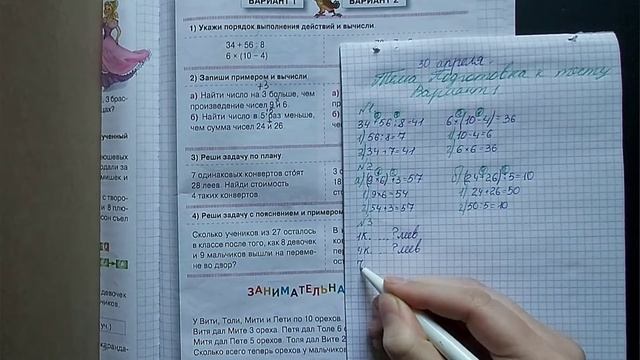 ВАРИАНТ 1
ВАРИАНТ 2
1) Укажи порядок выполнения действий и вычисли.
34 + 56 : 8
6 × (10 − 4)
2) Запиши примером и вычисли
+3
а) Найти число на 3 больше, чем
произведение чисел 9 и 6.
б) Найти число в 5 раз меньше,
чем сумма чисел 24 и 26
3) Реши задачу по плану
7 одинаковых конвертов стоят
28 леев. Найди стоимость
4 таких конвертов
4) Реши задачу с пояснением и примером
Сколько учеников из 27 осталось
в классе после того, как 8 девочек
и 9 мальчиков вышли на переме-
не во двор?
ЗАНИМАТЕЛЬНА
У Вити, Толи, Мити и Пети по 10 орехов.
Витя дал Мите 3 ореха. Петя дал Толе 6
Митя дал Пете 5 орехов. Толя дал Вите 2
Сколько всего теперь орехов у мальчиков
30 апреля.
Тема: Подготовка к тесту
Вариант 1
№1
34+56:8=41
1) 56:8=7
2) 34+7=41
6×(10-4)=36
1) 10-4=6
2) 6×6=36
№2
а) (9×6)+3=57
1) 9×6=54
2) 54+3=57
б) (24+26):5=10
1) 24+26=50
2) 50:5=10
№3
1к. ... ? леев
4к. ... ? леев
7